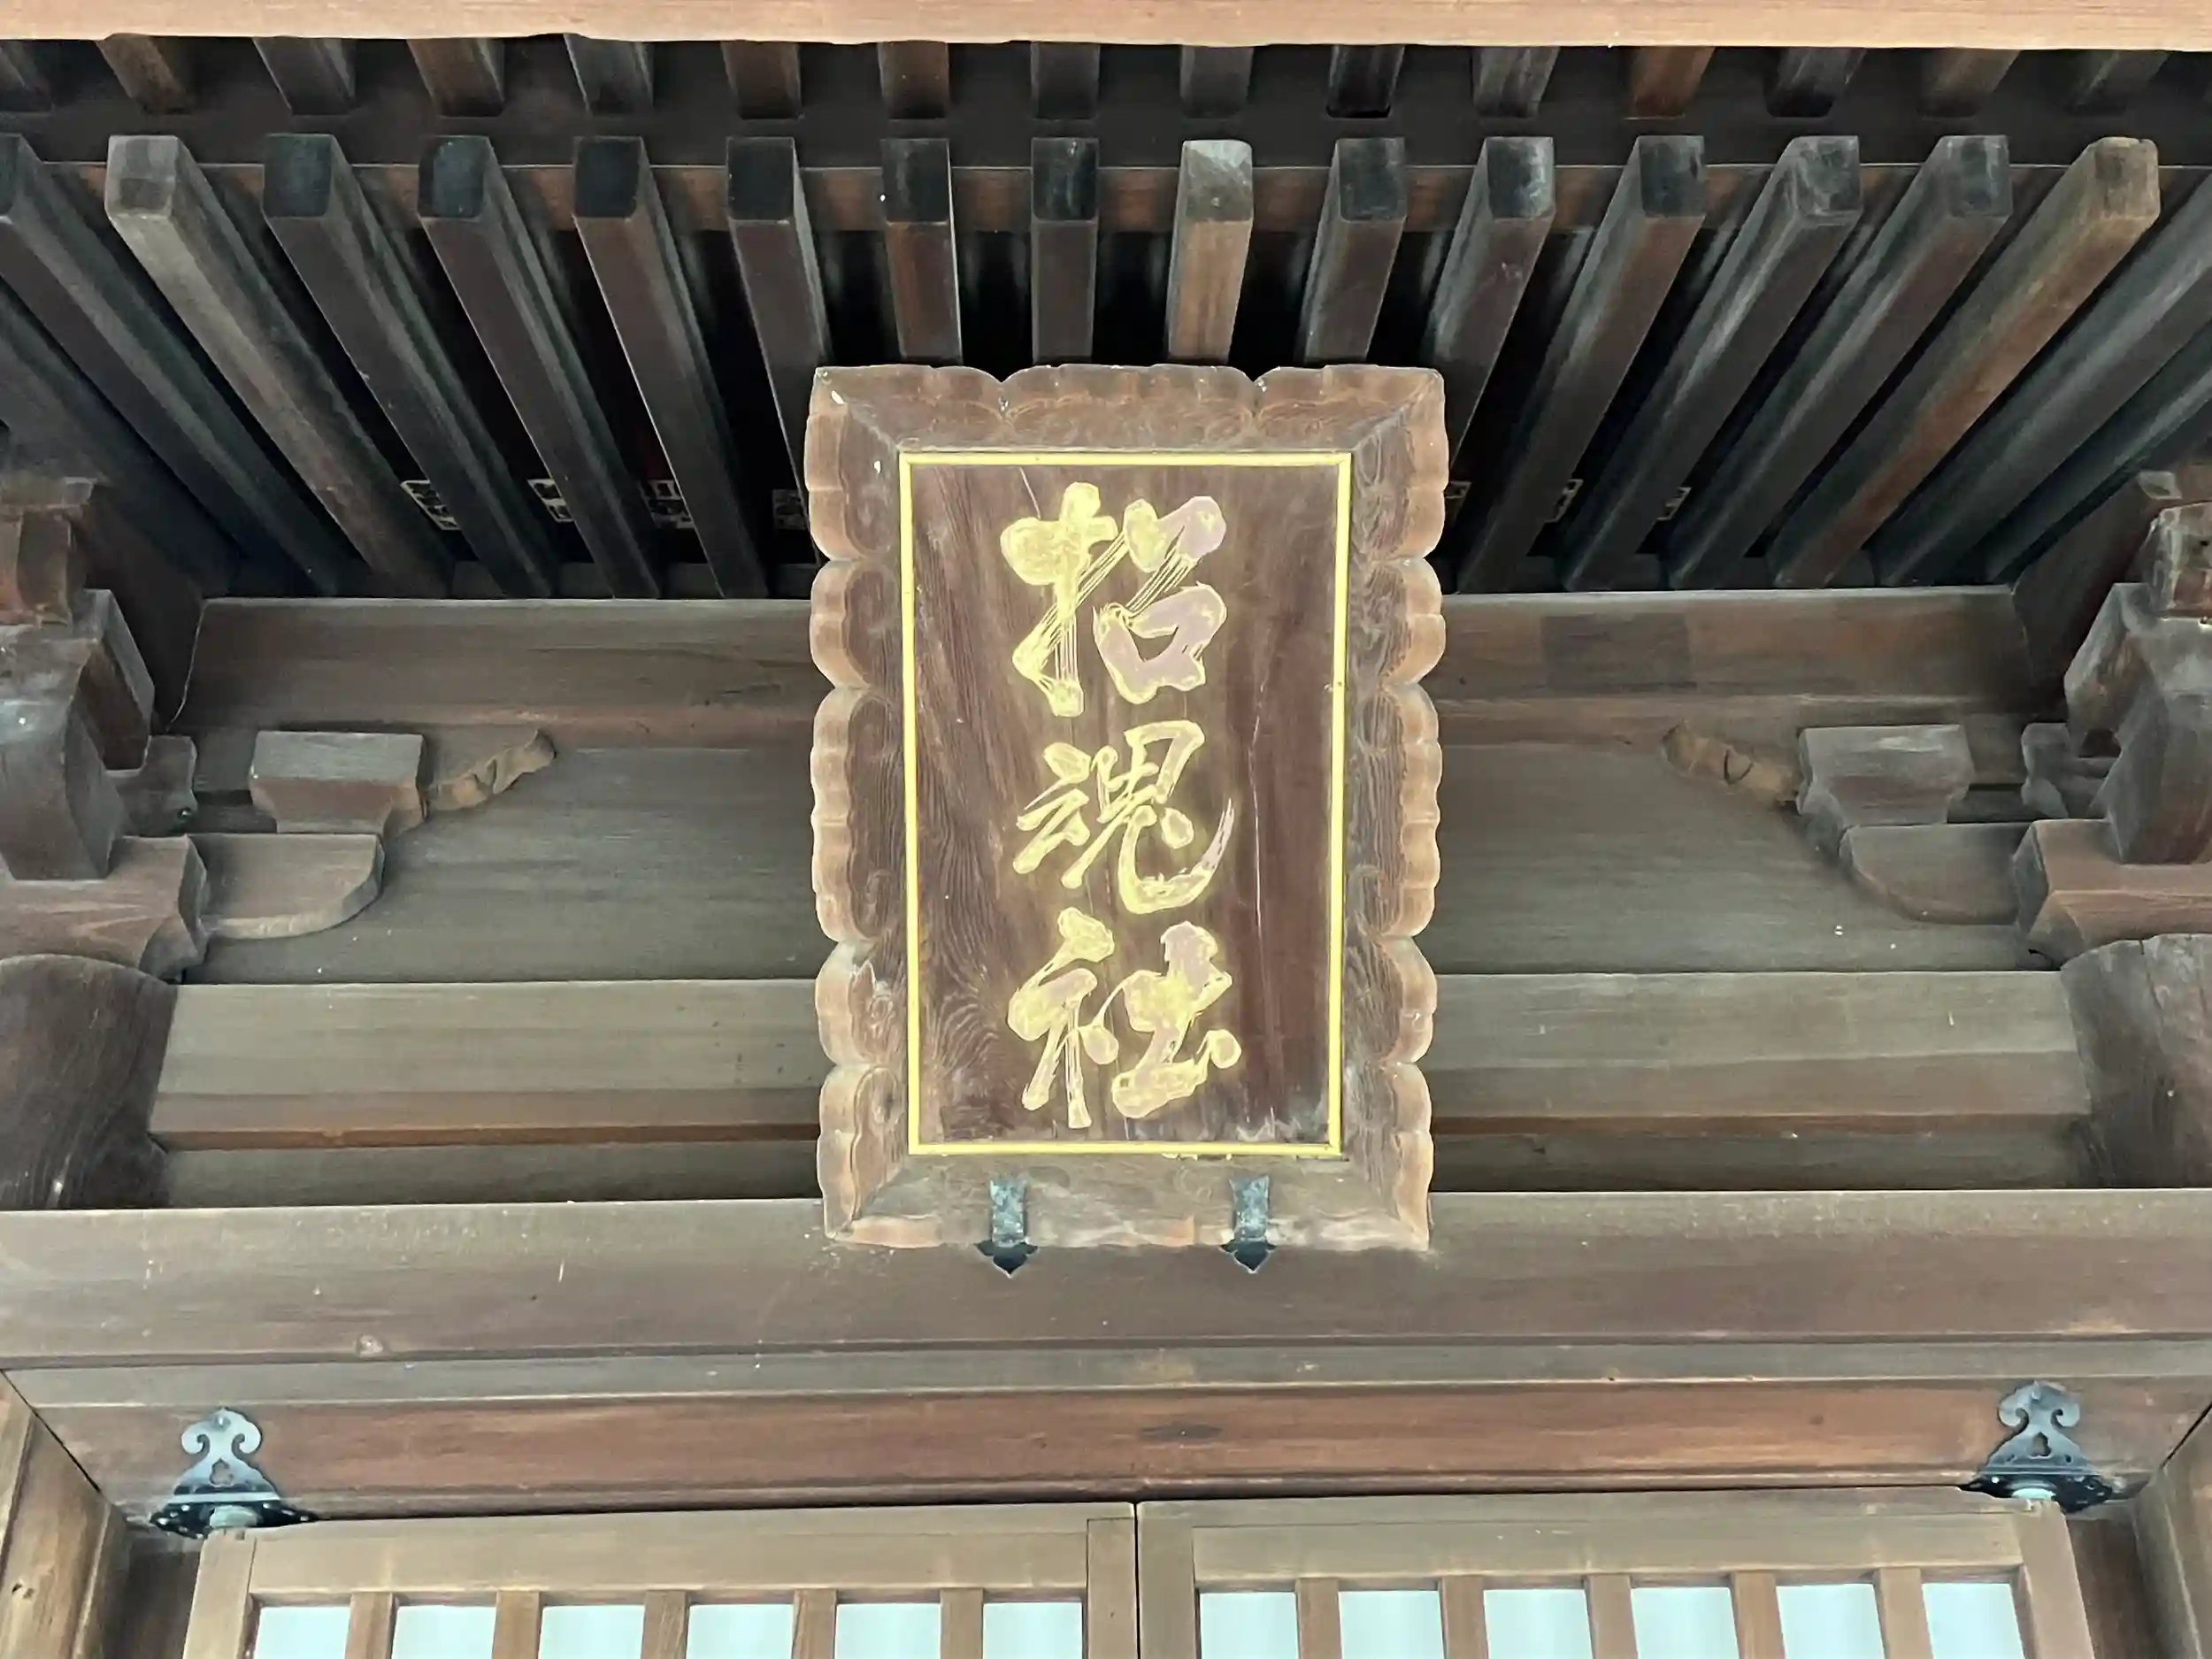 招魂社